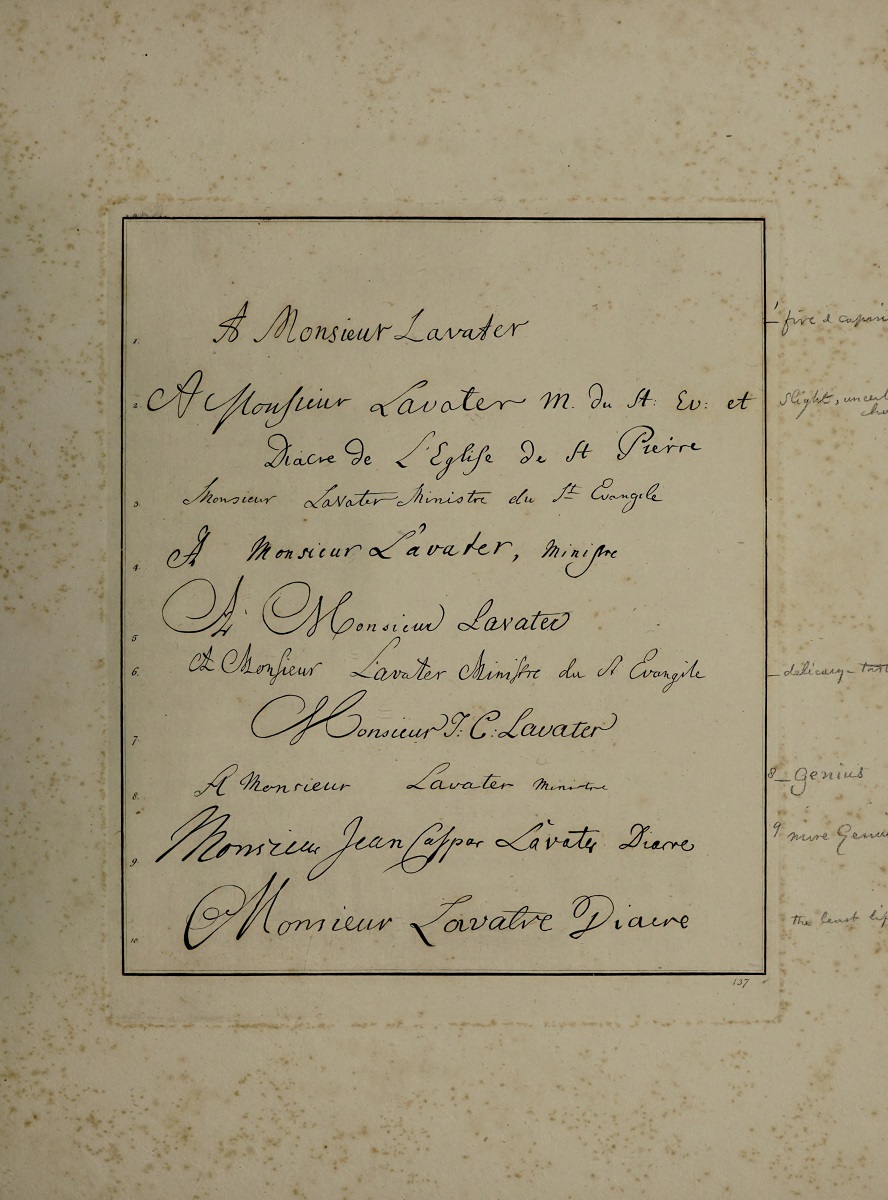 1. A Monsieur Lavater
1 fire &
2. A Monsieur Lavater M. du St: Ev: et
slight,
Diacre de L'Eglise de St Pierre
3. Monsieur Lavater Ministre du St Evangile
4. A Monsieur Lavater, Ministre
5 A Monsieur Lavater
6. A Monsieur Lavater Ministre du St Evangile
delicacy
7. Monsieur J: C: Lavater
8. A Monsieur Lavater Ministre
8 Genius
9 Monsieur Jean Caspar Lavater Diacre
9 more
10. Monsieur Lavatre Diacre
the least
137